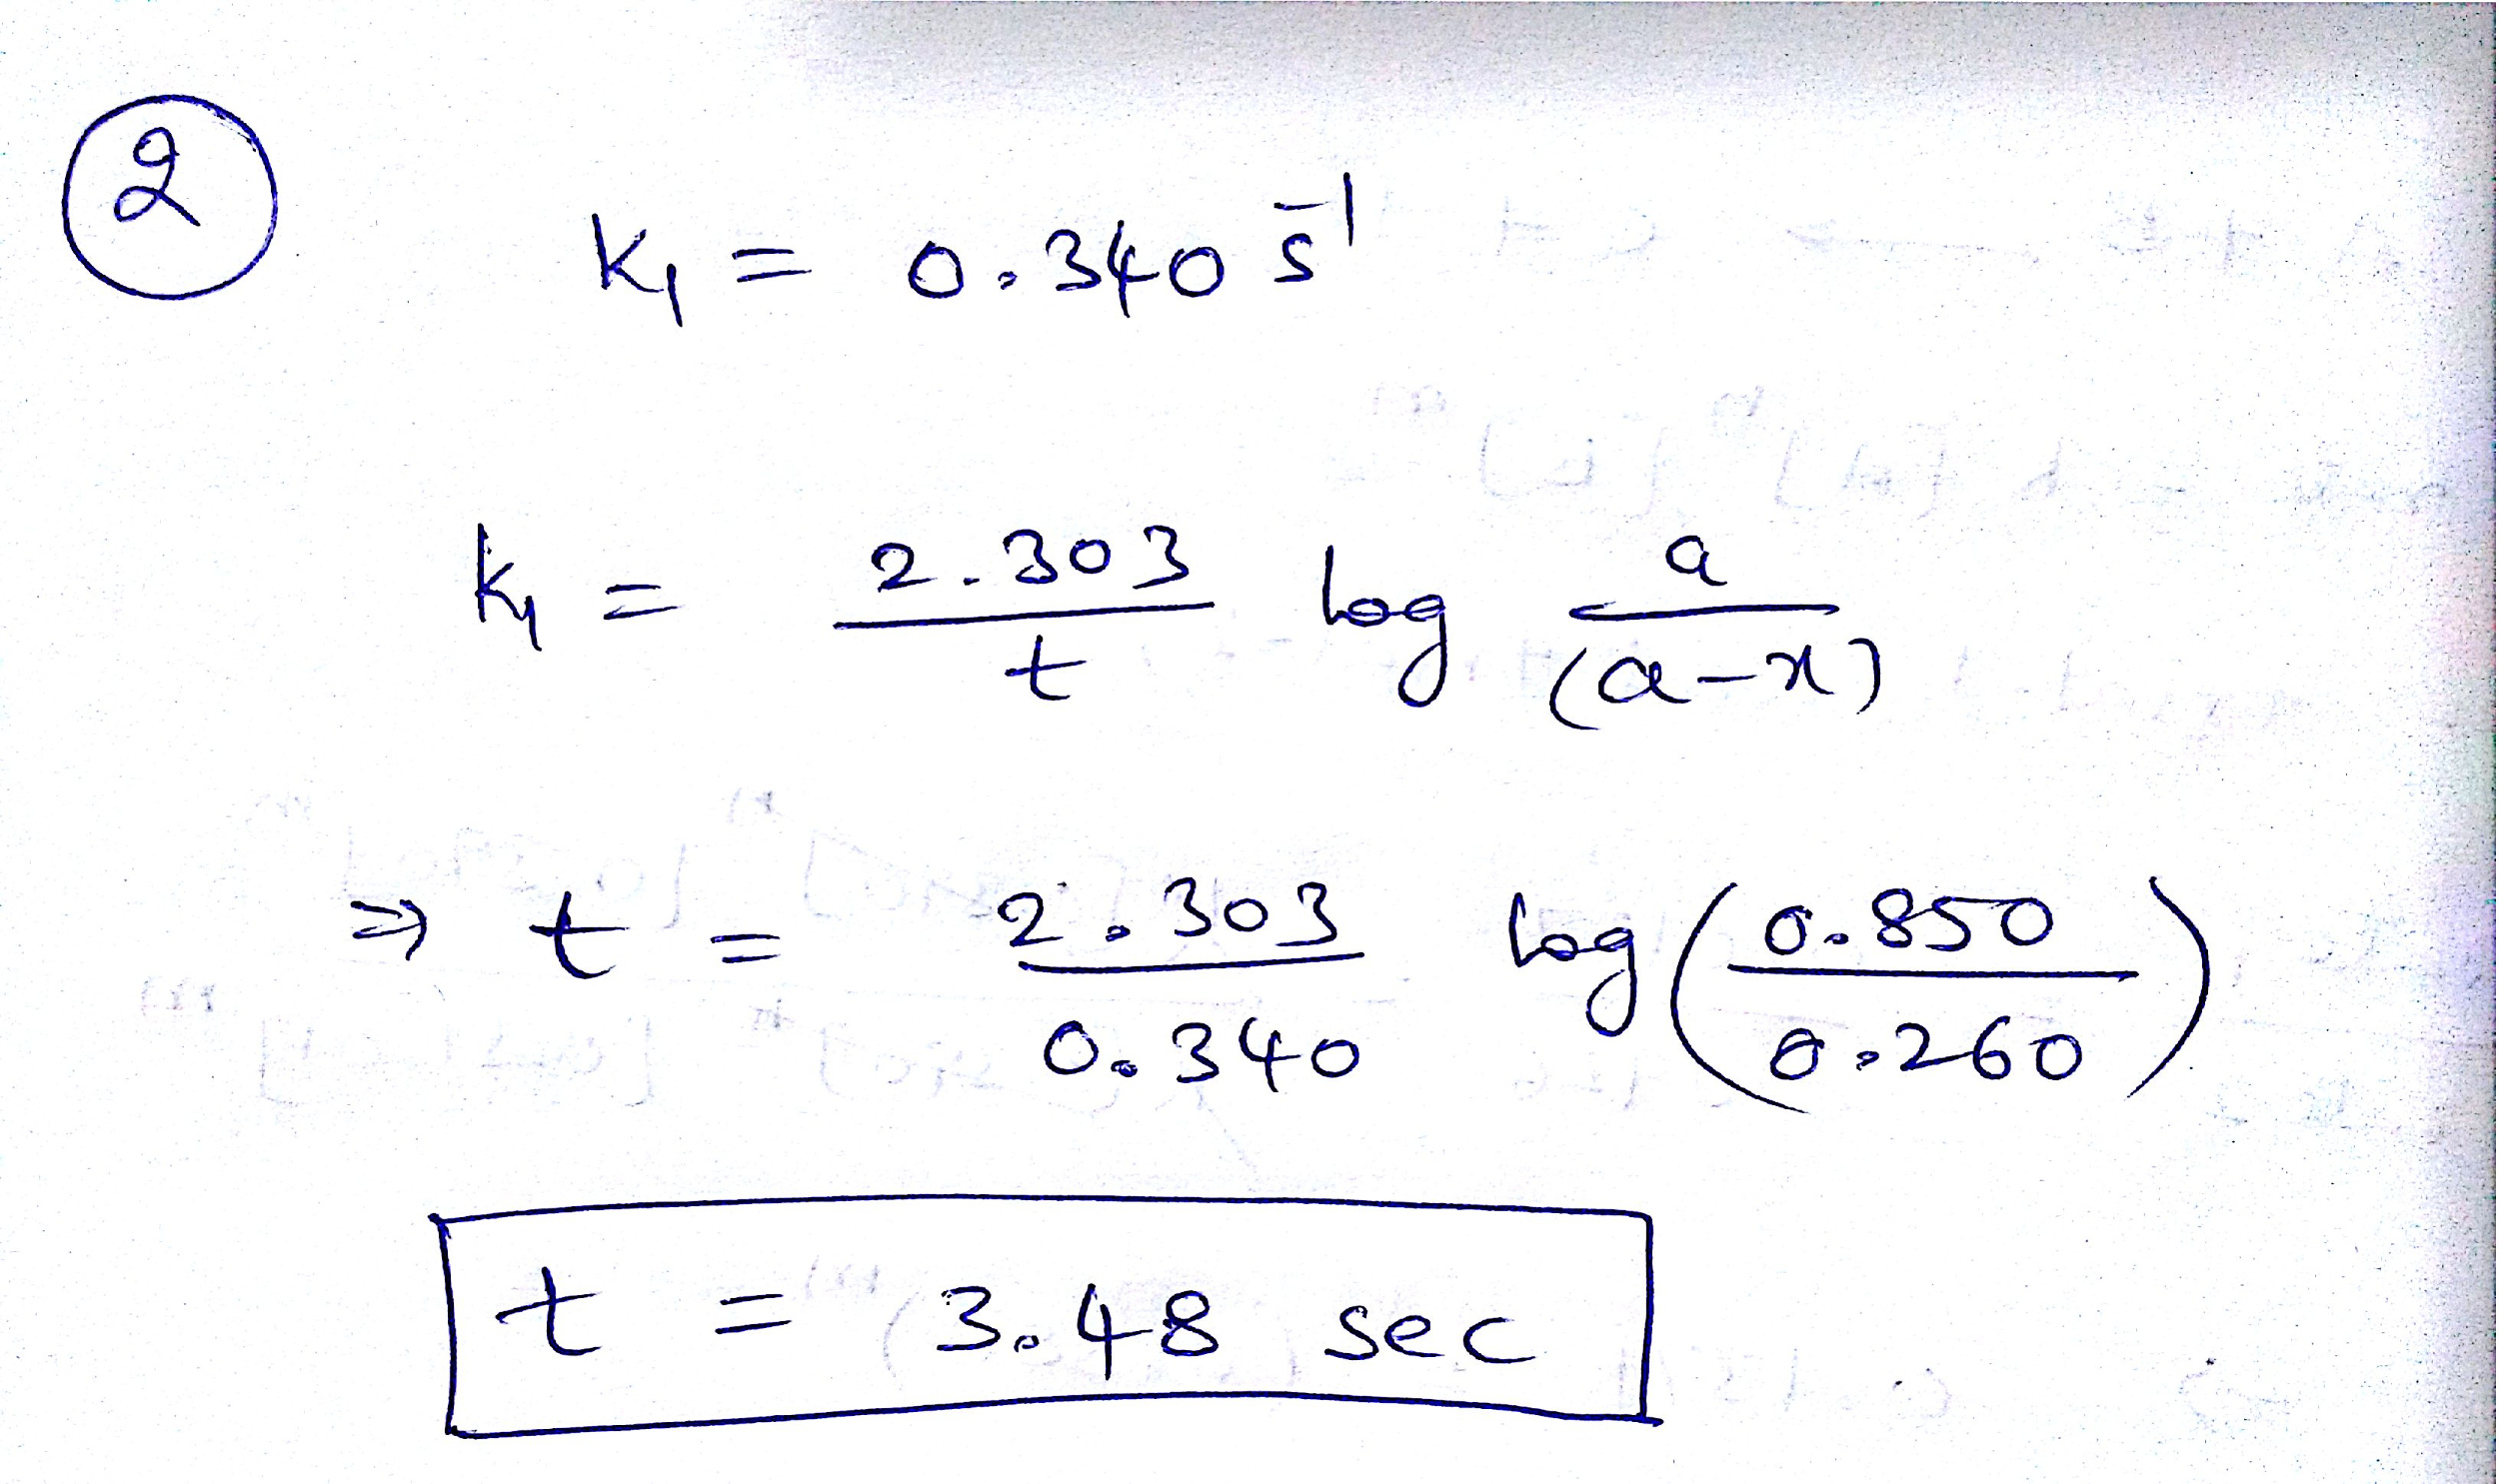 2
K₁ = 0.340 s⁻¹
k₁ = 2.303 / t log a / (a-x)
⇒ t = 2.303 / 0.340 log (0.850 / 0.260)
t = 3.48 sec